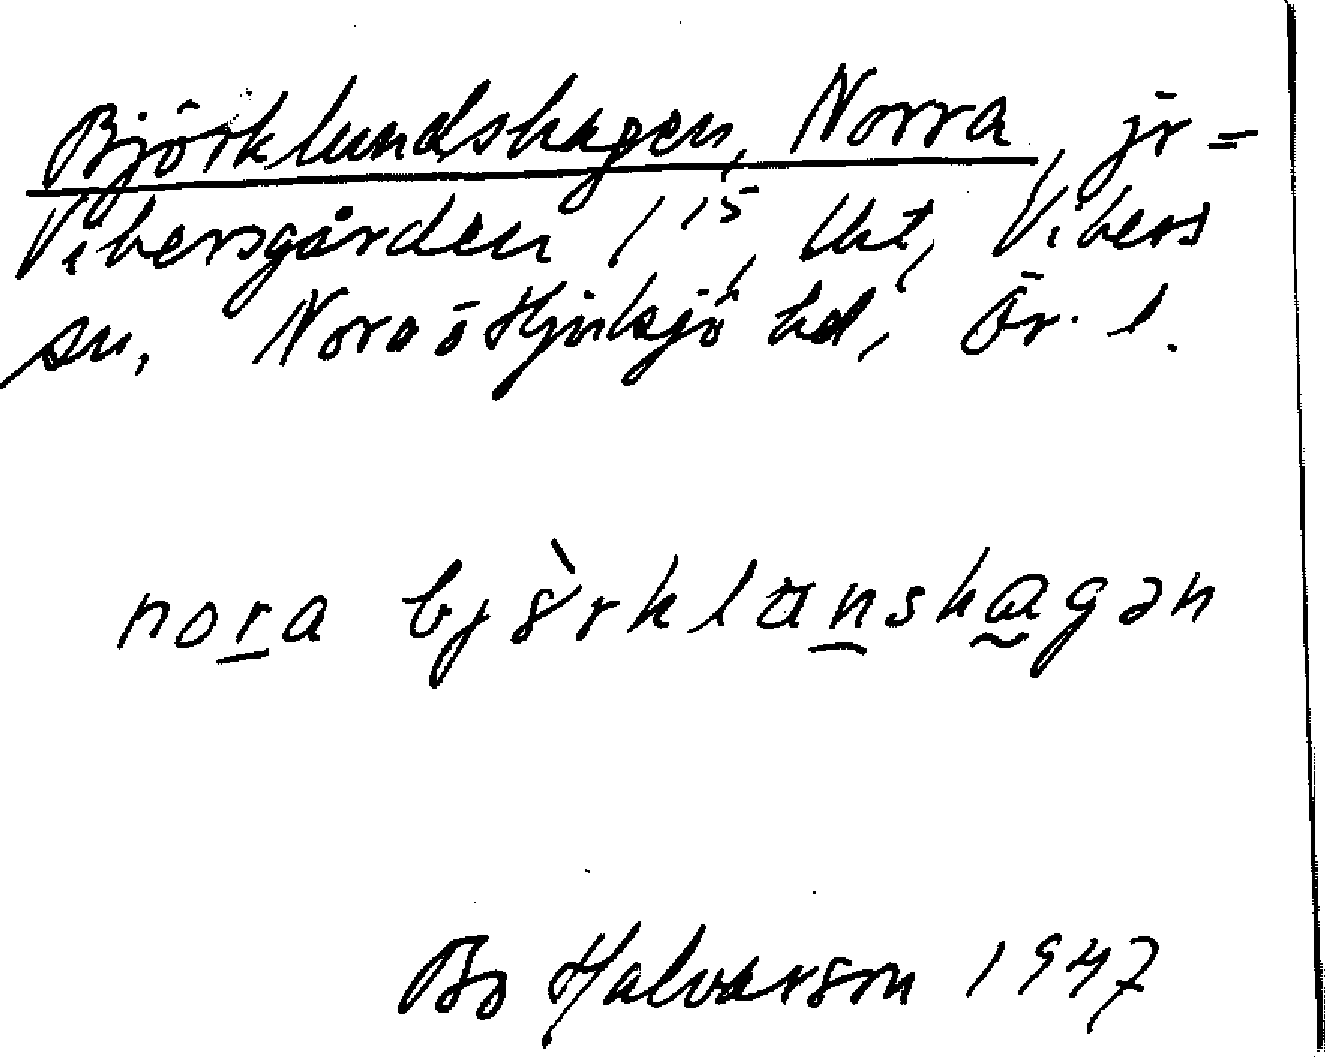 Björklundshagen, Norra, jr =
Vikersgården 1¹⁵, Ukt, Vikers
sn, Nora ö Hjulsjö hd, Ör. l.
nora bjòrklunshagən
Bo Halvarson 1947